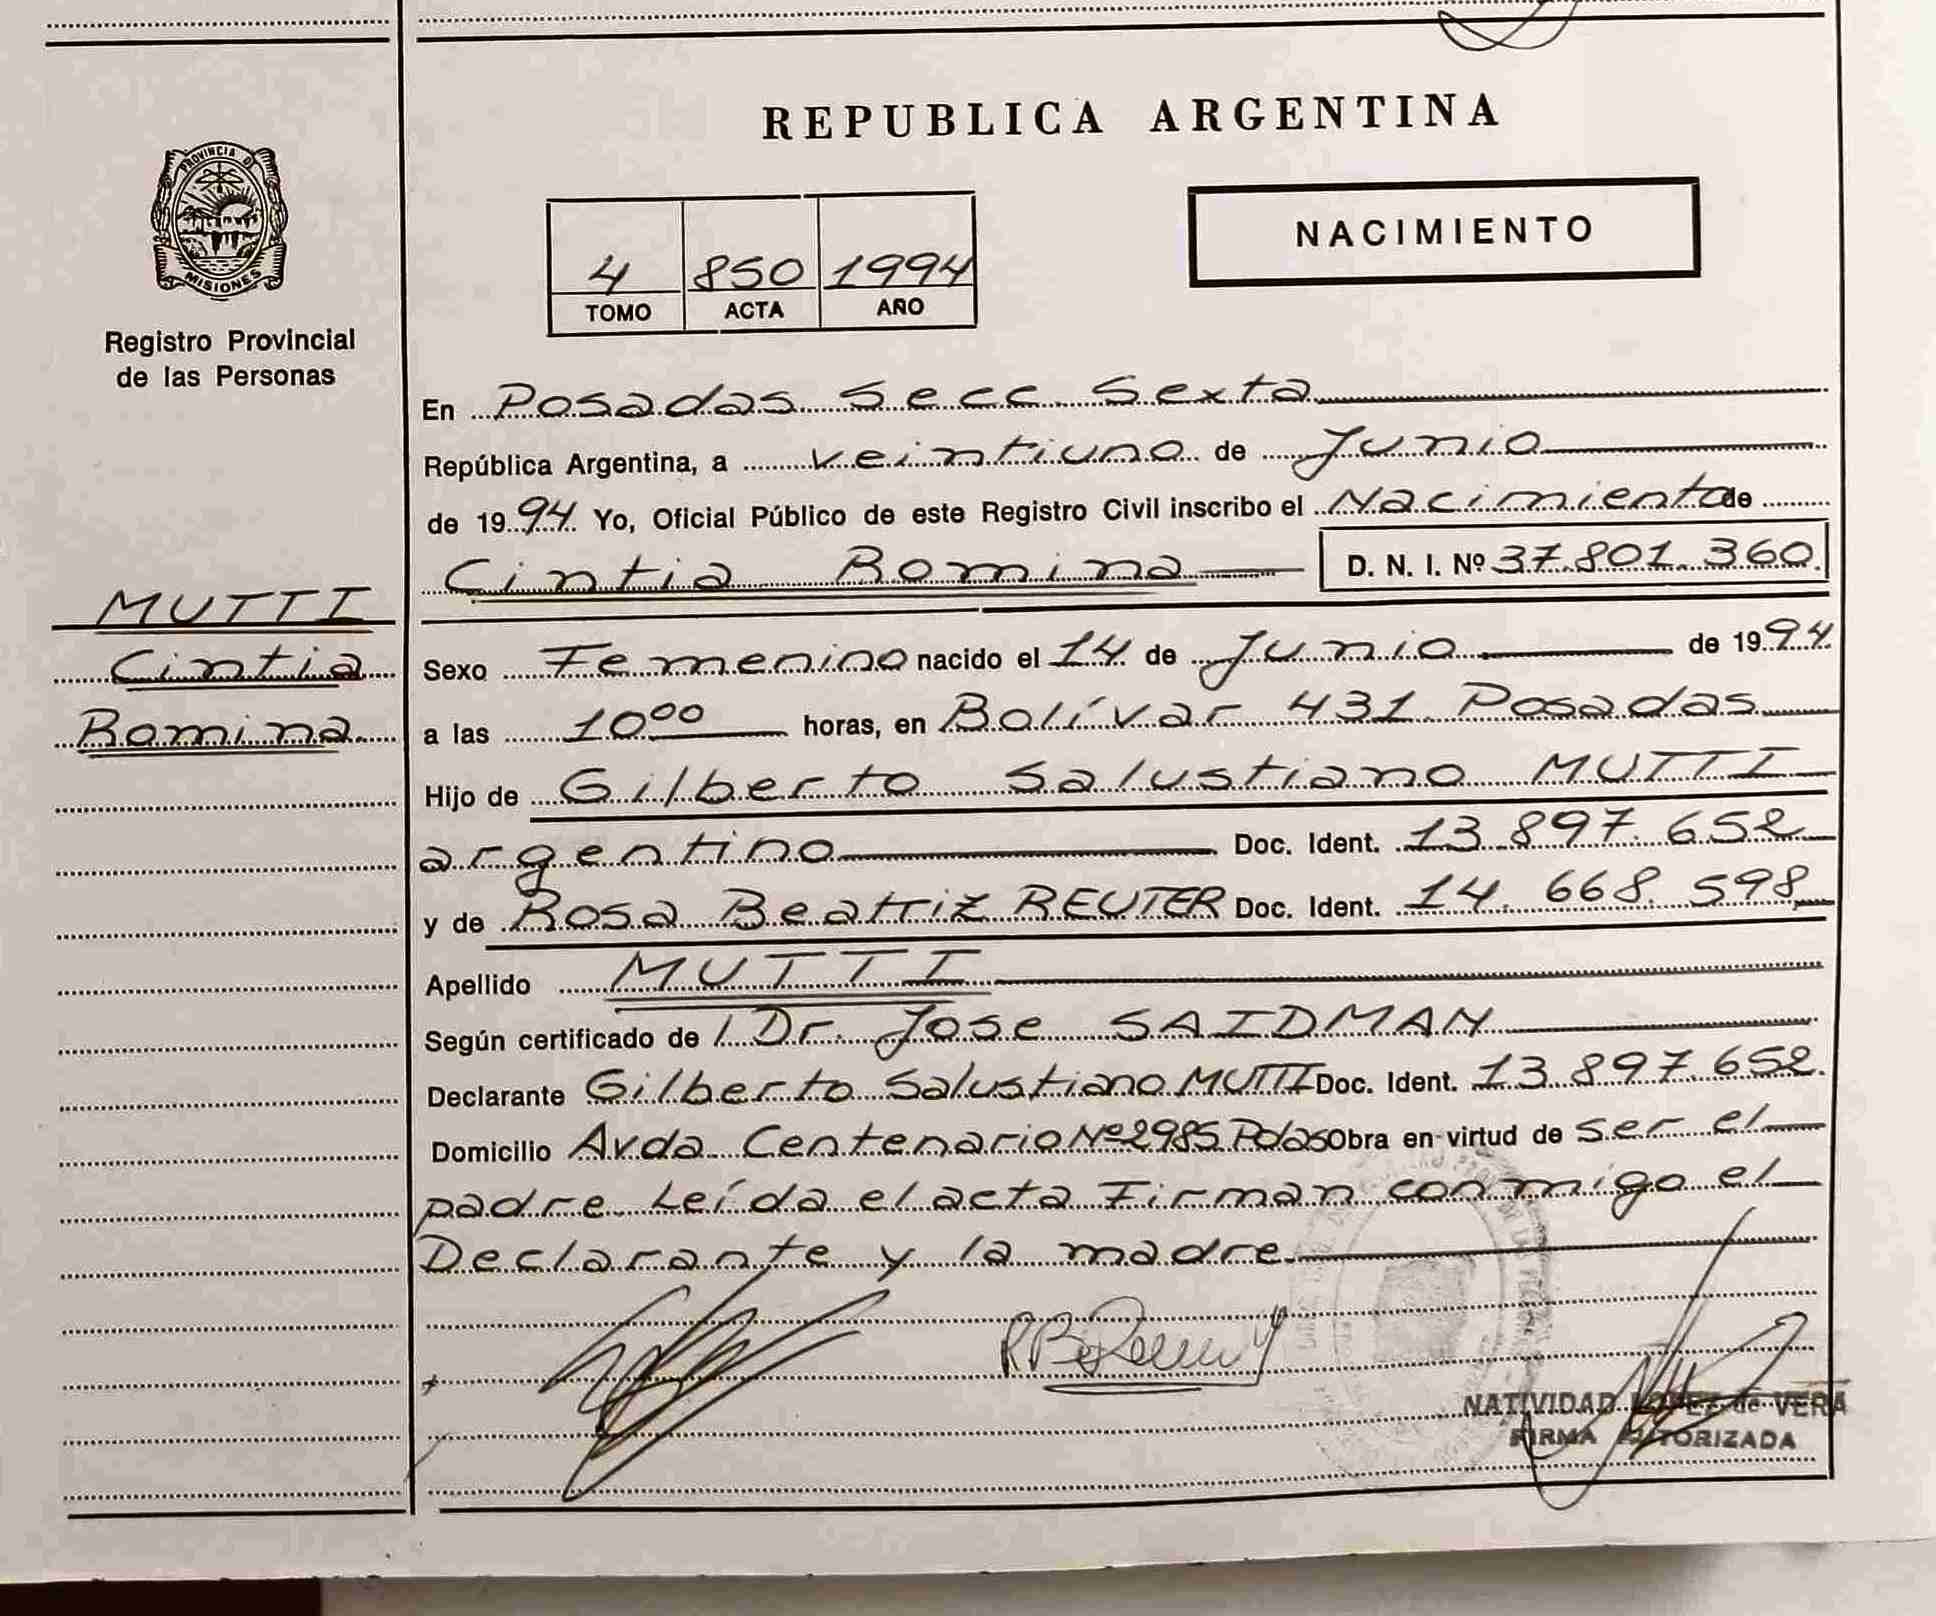 REPUBLICA ARGENTINA
PROVINCIA DE
MISIONES
Registro Provincial
de las Personas
4 850 1994
TOMO ACTA AÑO
NACIMIENTO
En Posadas Secc. Sexta
República Argentina, a veintiuno de Junio
de 1994 Yo, Oficial Público de este Registro Civil inscribo el Nacimiento de
Cintia Romina D. N. I. Nº 37.801.360
MUTTI
Cintia
Romina
Sexo Femenino nacido el 14 de Junio de 1994
a las 10⁰⁰ horas, en Bolívar 431 Posadas
Hijo de Gilberto Salustiano MUTTI
argentino Doc. Ident. 13.897.652
y de Rosa Beatriz REUTER Doc. Ident. 14.668.598
Apellido MUTTI
Según certificado de Dr. Jose SAIDMAN
Declarante Gilberto Salustiano MUTTI Doc. Ident. 13.897.652
Domicilio Avda Centenario Nº 2985 Pdas Obra en virtud de ser el
padre Leída el acta Firman conmigo el
Declarante y la madre
NATIVIDAD LOPEZ de VERA
FIRMA AUTORIZADA